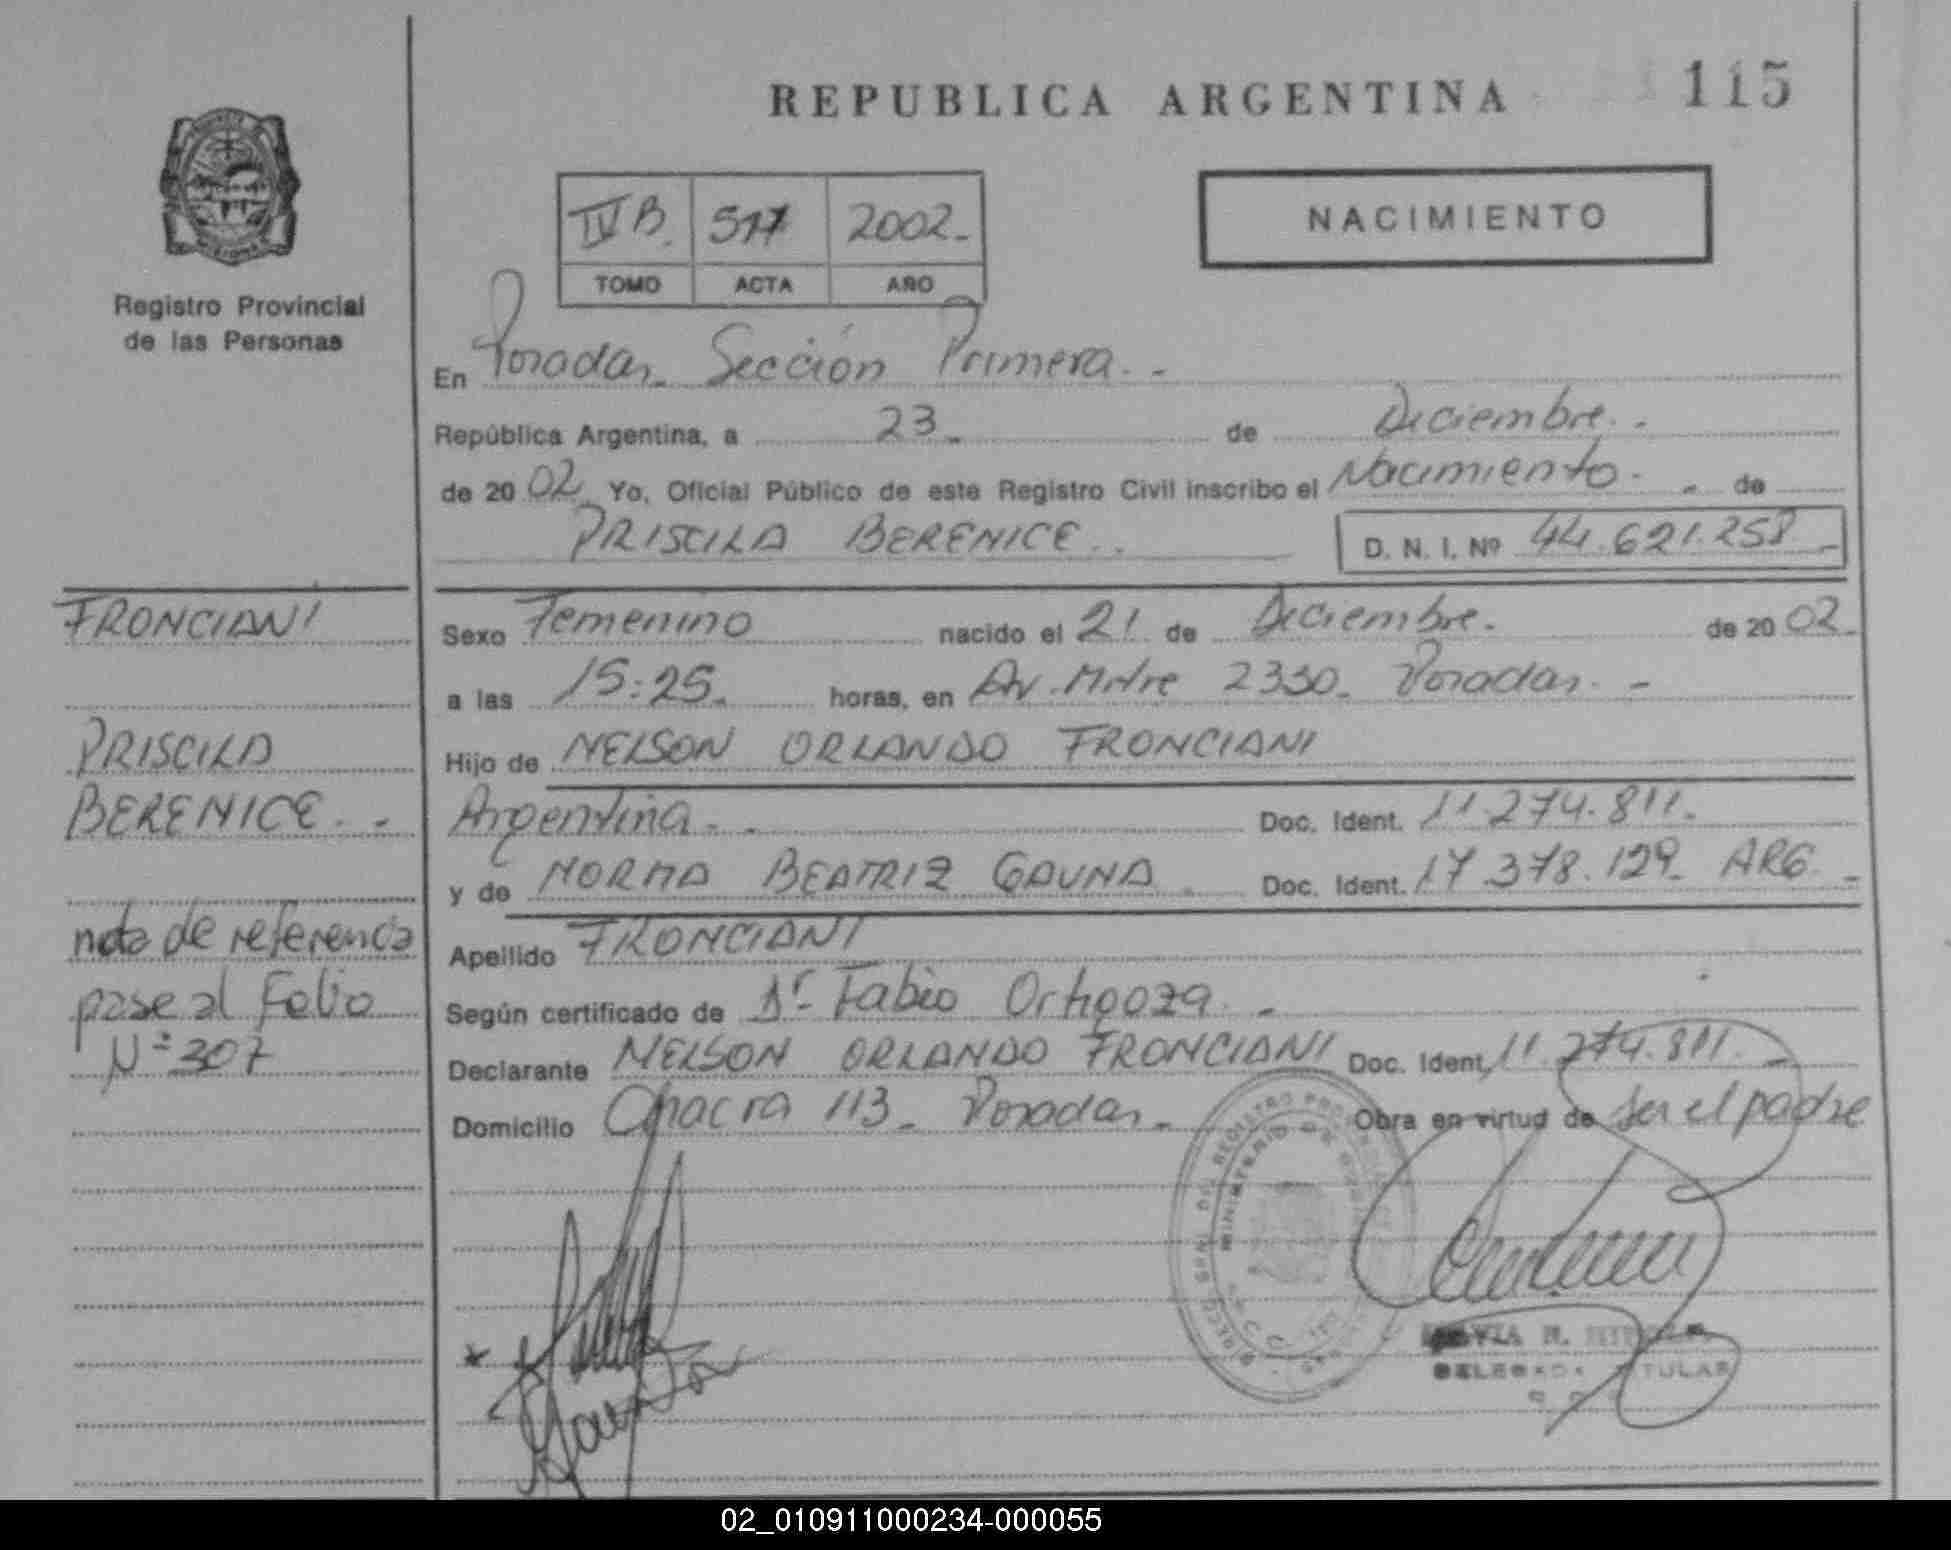 REPUBLICA ARGENTINA
115
IV B. 517 2002.-
TOMO ACTA AÑO
NACIMIENTO
Registro Provincial
de las Personas
En Posadas. Sección Primera. -
República Argentina, a 23 de Diciembre. -
de 2002 Yo, Oficial Público de este Registro Civil inscribo el Nacimiento. - de
PRISCILA BERENICE. D. N. I. Nº 44.621.258 -
FRONCIANI
PRISCILA
BERENICE. -
nota de referencia
pase al Folio
Nº 307
Sexo Femenino nacido el 21 de Diciembre. de 2002.
a las 15:25. horas, en Av. Mitre 2330. Posadas. -
Hijo de NELSON ORLANDO FRONCIANI
Argentina. - Doc. Ident. 11.274.811.
y de NORMA BEATRIZ GAUNA. Doc. Ident. 17.378.129. ARG. -
Apellido FRONCIANI
Según certificado de Dr. Fabio Ortigoza. -
Declarante NELSON ORLANDO FRONCIANI Doc. Ident. 11.274.811. -
Domicilio Chacra 113. Posadas. - Obra en virtud de ser el padre
MINISTERIO DE
TITULAR
02_010911000234-000055